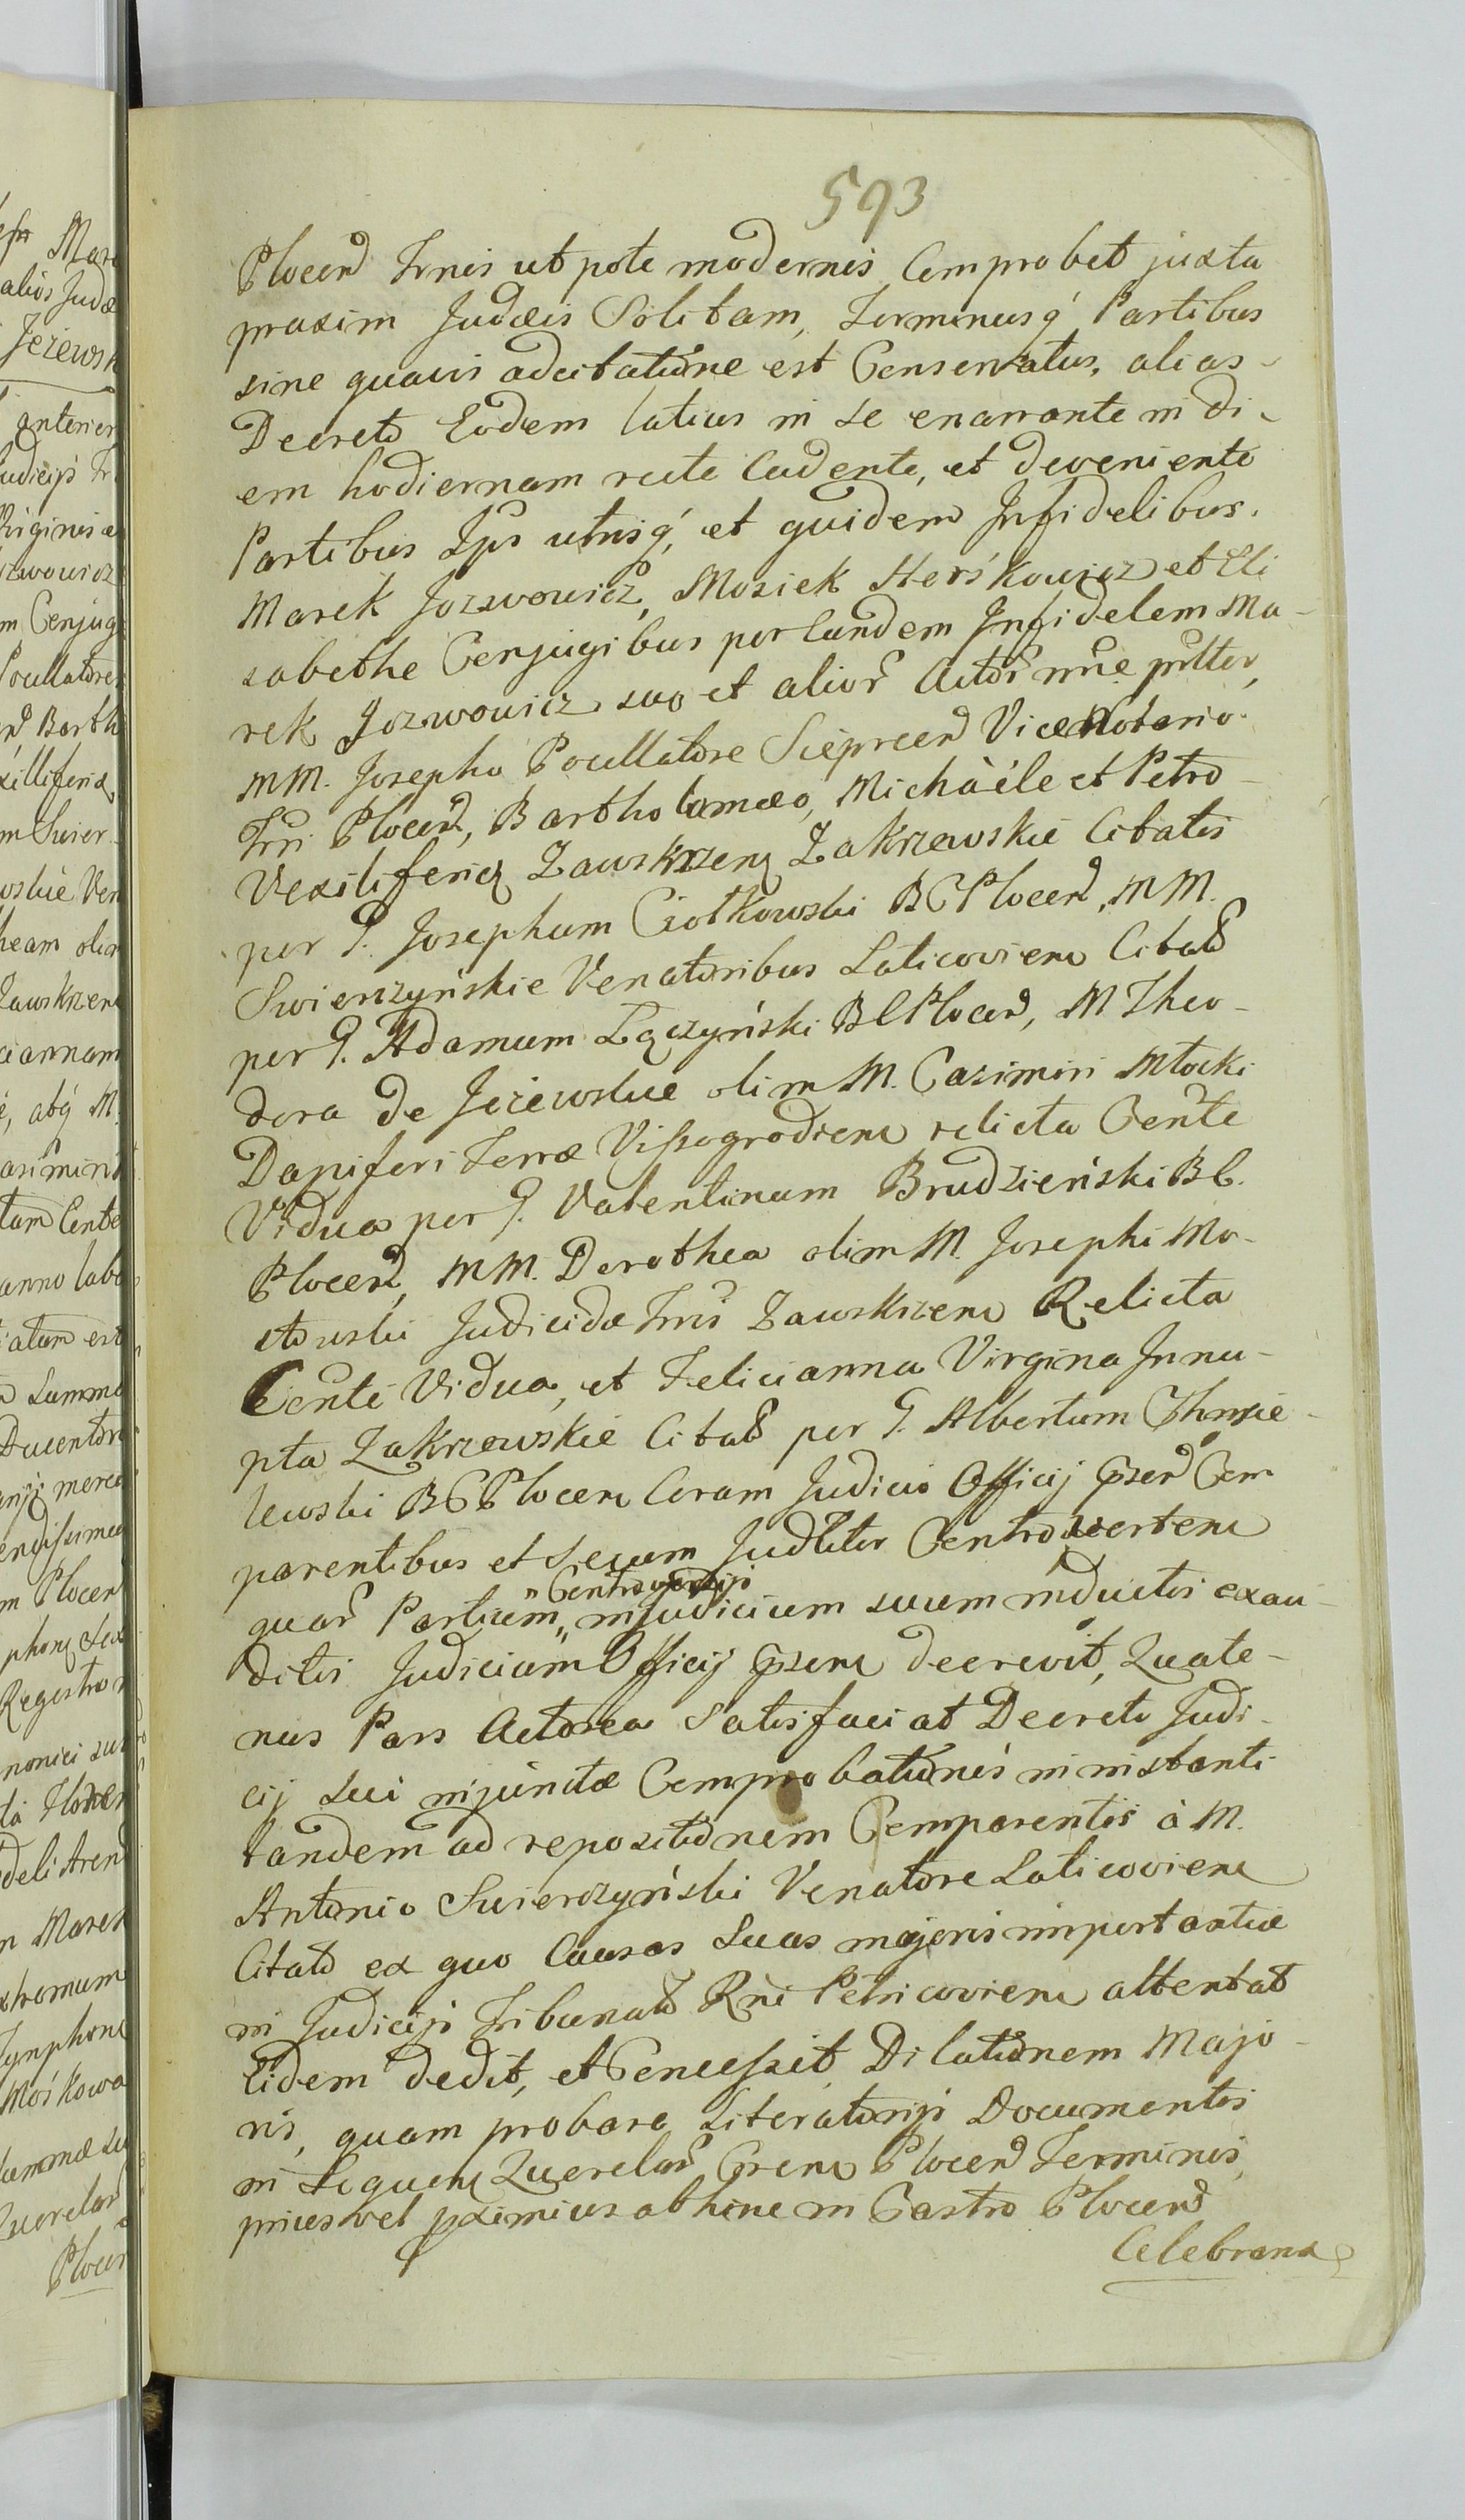 593
Plocen Trris utpote modernis Comprobet juxta
praxim Judæis Solitam, Terminusq́ Partibus
sine quavis adcitatione est Conservatus, alias
Decreto Eodem latius in se enarrante in di-
em hodiernam recte Cadente, et deveniente
Partibus Ipsis utrisq́, et quidem Infidelibus.
Marek Jozwowicz, Mosiek Herśkowicz et Eli
sabethe Conjugibus per Eundem Infidelem Ma-
rek Jozwowicz suo et alior Actor nne pntter,
MM. Josepho Pocillatore Sieprcen Vice Notario
Trri Plocen, Bartholomæo, Michaéle et Petro
Vexiliferid Zawskrzen Zakrzewskie Citatis
per G. Josephum Ciołkowski BCPlocen, MM.
Swierczyńskie Venatoribus Laticovien Citatis
per G. Adamum Łączyński BCPlocen, M Theo-
dora de Jeżewskie olim M. Casimiri Młocki
Dapiferi Terræ Vissogrodien relicta Cente
Vidua per G. Valentinum Brudzieński BC.
Plocen, MM. Dorothea olim M. Josephi Mo-
stowski Judicidæ Trris Zawskrzen Relicta
Cente Vidua, et Felicianna Virgina Innu-
pta Zakrzewskie Citatis per G. Albertum Chmie-
lewski BCPlocen Coram Judicio Officij Cpsen Com
parentibus et Secum Judltter Controverten
quar Partium „ in Judicium suum inductis exau-
„Controversijs
ditis Judicium Officij Cpsen decrevit, Quate-
nus Pars Actorea Satisfaciat Decreto Judi-
cij Sui injunctæ Comprobationis in instanti
tandem ad repositionem Comparentis à M.
Antonio Swierczyński Venatore Laticovien
Citato ex quo Causas Suas majoris importantiæ
in Judicijs Tribunalis Rni Petricovien attentat
Eidem dedit, et Concessit, Dilationem Majo-
ris, quam probare Literatorijs Documentis
in Sequen Querelar Cren Plocen Terminis,
prius vel pximius abhinc in Castro Plocen
Celebrand